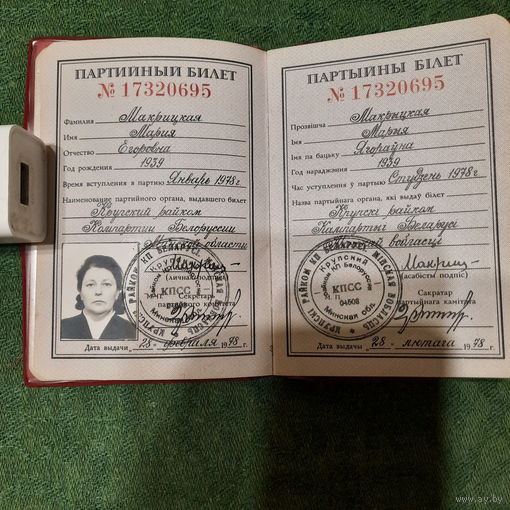 ПАРТИЙНЫЙ БИЛЕТ
№ 17320695
Фамилия Макрицкая
Имя Мария
Отчество Егоровна
Год рождения 1939
Время вступления в партию Январь 1978 г.
Наименование партийного органа, выдавшего билет
Крупский райком
Компартии Белоруссии
области
(личная подпись)
М.П.
Секретарь
партийного комитета
КПСС
Дата выдачи 28 февраля 1978 г.
ПАРТЫЙНЫ БІЛЕТ
№ 17320695
Прозвішча Макрыцкая
Імя Марыя
Імя па бацьку Ягораўна
Год нараджэння 1939
Час уступлення ў партыю Студзень 1978 г.
Назва партыйнага органа, які выдаў білет
Крупскі райком
Кампартыі Беларусі
вобласці
(асабісты подпіс)
М. П.
Сакратар
партыйнага камітэта
КРУПСКІ РАЙКОМ КП БЕЛАРУСІ МІНСКАЯ ВОБЛАСЦЬ
Крупский райком КП Белоруссии
КПСС
04508
Минская обл.
Дата выдачы 28 лютага 1978 г.
www.ay.by